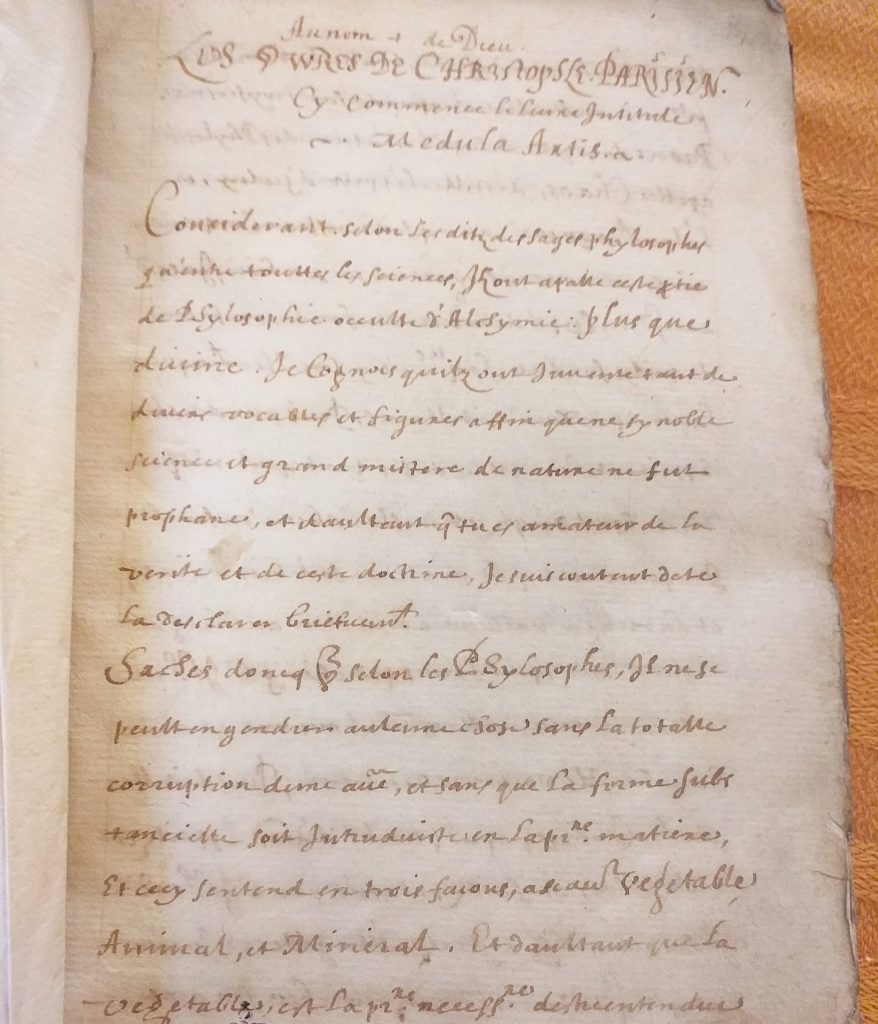 Au nom + de Dieu.
LES ŒVVRES DE CHRISTOPHLE PARISIEN.
Cy Commence le liure Intitulé
Medula Artis
Considerant selon les ditz des sages phylosophes
qu'entre touttes les sciences, Ilz ont apelle ceste ptie
de Phylosophie occulte d'Alchymie: plus que
diuine. Je Cognois quilz ont Inuenté tant de
diuers vocables et figures affin que ne sy noble
science et grand mistere de nature ne fut
prophane, et daultant q̃ tu es amateur de la
verite et de ceste doctrine, Je suis content de te
la desclarer briefuemt.
Saches doncq q selon les Phylosophes, Il ne se
peult engendrer aulcune chose sans la totalle
corruption dune aũe, et sans que la forme subs
tancielle soit Introduiste en la pre. matiere,
Et cecy sentend en trois facons, a scaur vegetable
Animal, et Mineral. Et daultant que la
vegetable, est la pre. necessre destre entendue